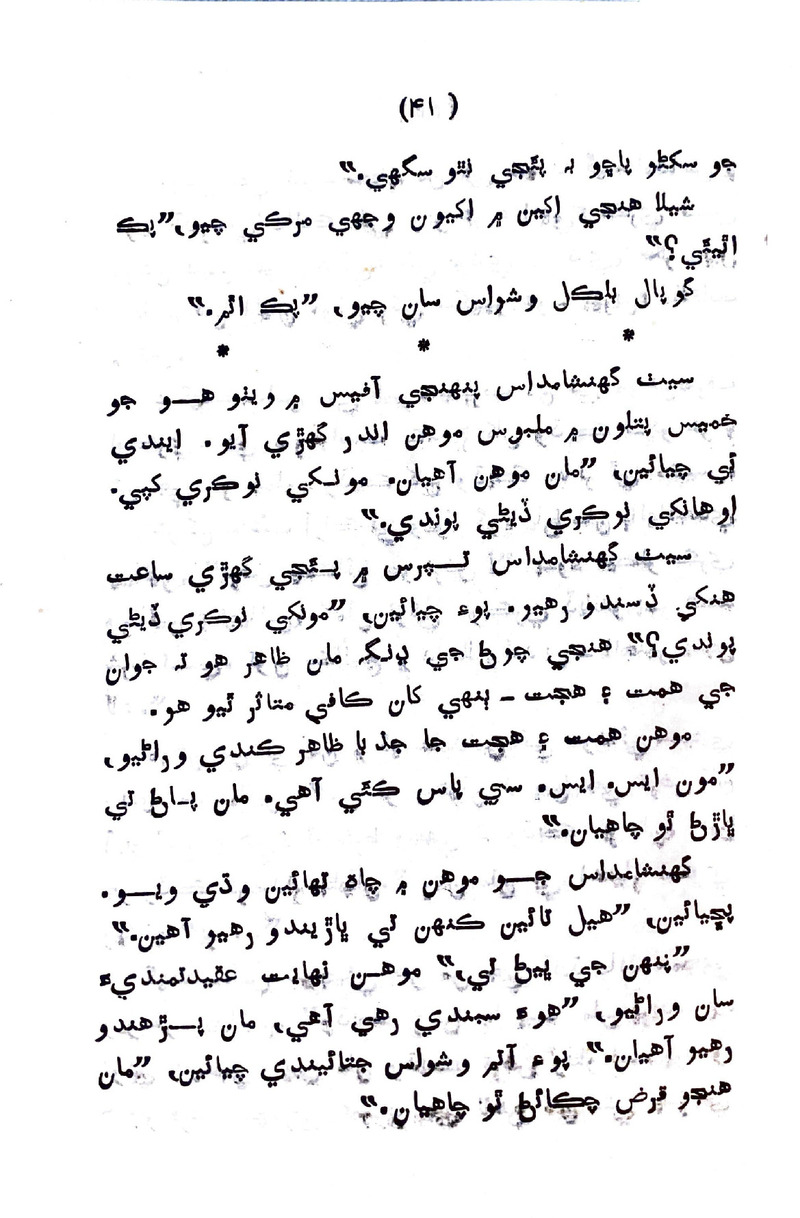 (۴۱)
جو سڪڻو پاڇو بہ پئجي نٿو سگهي.“
شيلا هنجي اکين ۾ اکيون وجهي مرڪي چيو، ”پڪ
اٿيئي؟“
گوپال بلڪل وشواس سان چيو، ”پڪ اٿم.“
* * *
سيٺ گهنشامداس پنهنجي آفيس ۾ ويٺو هـــو جو
خميس پتلون ۾ ملبوس موهن اندر گهڙي آيو. ايندي
ئي چيائين، ”مان موهن آهيان. مونکي نوڪري کپي.
اوهانکي نوڪري ڏيڻي پوندي.“
سيٺ گهنشامداس تـــپرس ۾ پـــئجي گهڙي ساعت
هنکي ڏسندو رهيو. پوءِ چيائين، ”مونکي نوڪري ڏيڻي
پوندي؟“ هنجي چوڻ جي ڍنگہ مان ظاهر هو تہ جوان
جي همت ۽ هڄت - ٻنهي کان ڪافي متاثر ٿيو هو.
موهن همت ۽ هڄت جا جذبا ظاهر ڪندي وراڻيو،
”مون ايس. ايس. سي پاس ڪئي آهي. مان پـاڻ تي
ڀاڙڻ ٿو چاهيان.“
گهنشامداس جـــو موهن ۾ چاهہ تهائين وڌي ويـــو.
پڇيائين، ”هيل تائين ڪنهن تي ڀاڙيندو رهيو آهين.“
”پنهن جي ڀيڻ تي،“ موهـــن نهايت عقيدتمنديءَ
سان وراڻيو، ”هوءَ سبندي رهي آهي، مان پـــڙهندو
رهيو آهيان.“ پوءِ آتم وشواس جتائيندي چيائين، ”مان
هنجو قرض چڪائڻ ٿو چاهيان.“